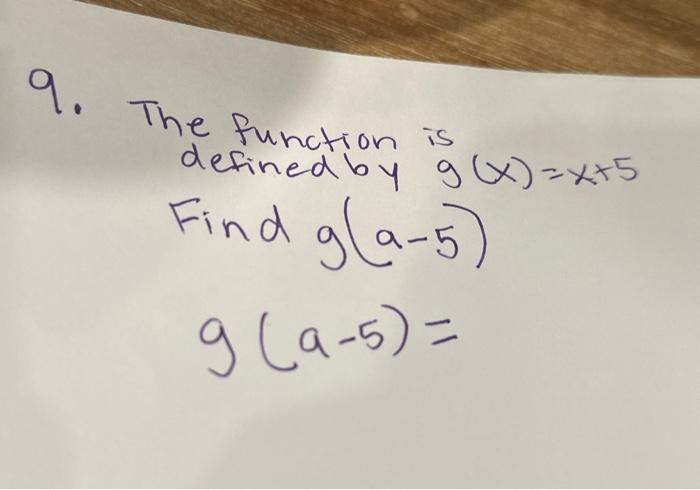 9. The function is
defined by g(x)=x+5
Find g(a-5)
g(a-5)=